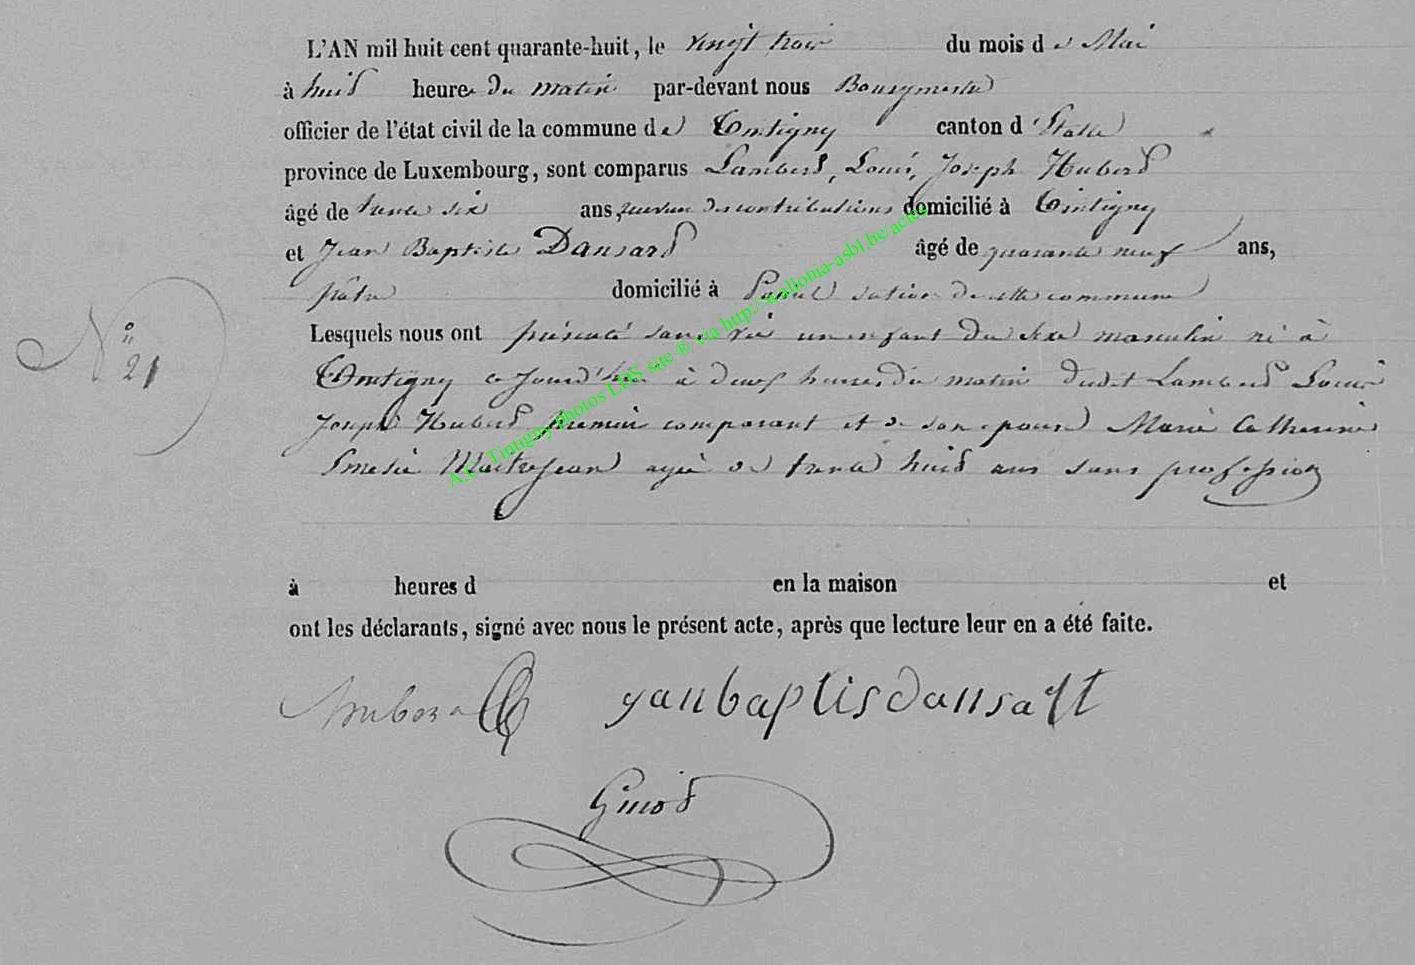 L'AN mil huit cent quarante-huit, le vingt trois du mois de Mai
à huit heures du matin par-devant nous Bourgmestre
officier de l'état civil de la commune de Tintigny canton d'Etalle
province de Luxembourg, sont comparus Lambert, Louis, Joseph Hubert
âgé de trente six ans, receveur des contributions domicilié à Tintigny
et Jean Baptiste Dansard âgé de quarante neuf ans,
pâtre domicilié à section de cette commune
Lesquels nous ont présenté sans vie un enfant du sexe masculin né à
N° 21
Tintigny ce jourd'hui à deux heures du matin dudit Lambert Louis
Joseph Hubert premier comparant et de son épouse Marie Catherine
Maitrejean agée de trente huit ans sans profession
à heures d en la maison et
ont les déclarants, signé avec nous le présent acte, après que lecture leur en a été faite.
yanbaptisdansart
A.C. Tintigny photos LDS site ® via http://wallonia-asbl.be/actes